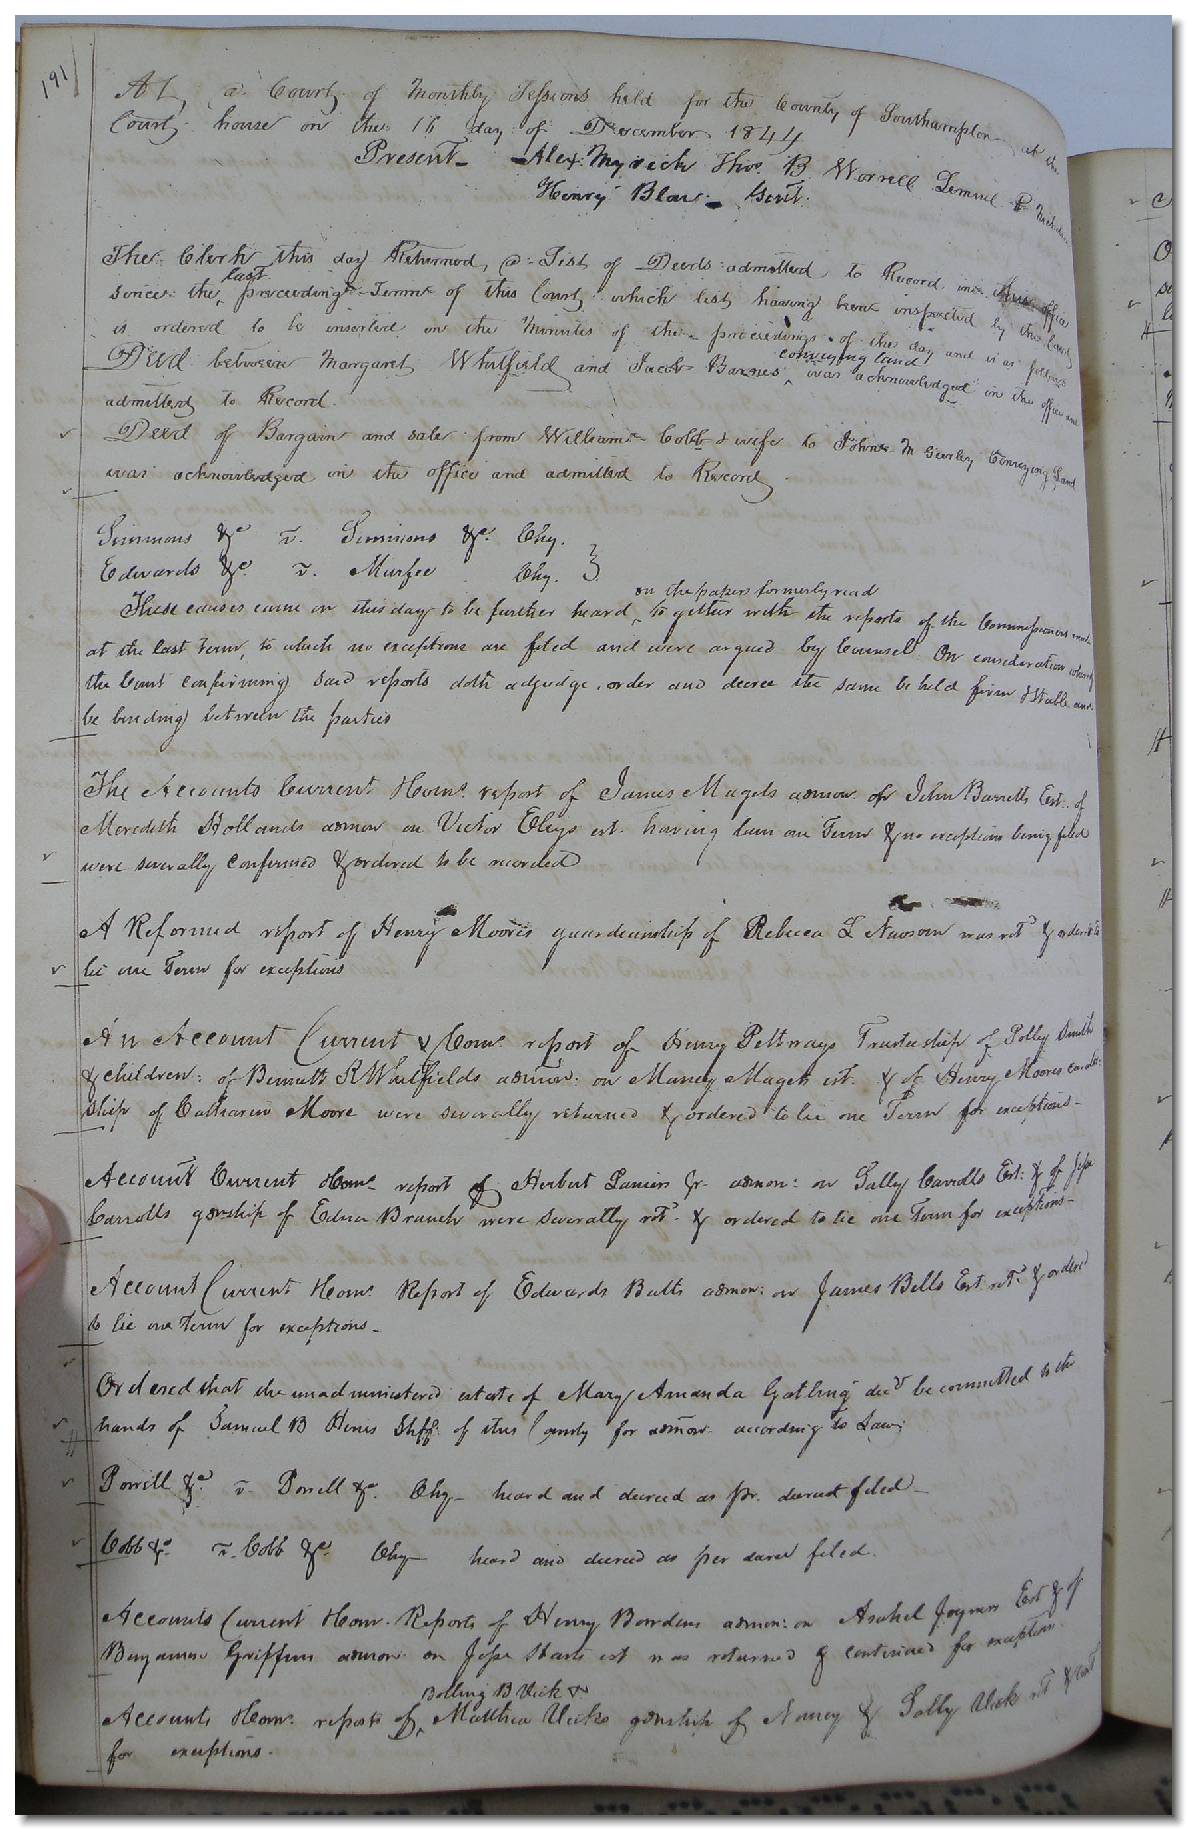 191
At a Court of Monthly Sessions held for the County of Southampton at the
Court house on the 16 day of December 1844
Present - Alex. Myrick Thos. B Worrell Lemuel
Henry Blow - Gent.
The Clerk this day Returned a List of Deeds admitted to Record in this office
since the last preceeding Term of this Court which list having been inspected by the Court
is ordered to be inserted on the Minutes of the proceedings of the day and is as follows
Deed between Margaret Whitfield and Jacob Barnes conveying land was acknowledged in the office and
admitted to Record.
Deed of Bargain and sale from William Cobb & wife to John M Gurley Conveying Land
was acknowledged in the office and admitted to Record
Simmons &c v. Simmons &c. Chy.
Edwards &c. v. Murfee Chy.
These causes came on this day to be further heard, on the papers formerly read together with the reports of the Commissioners made
at the last Term, to which no exceptions are filed and were argued by Counsel. On consideration whereof
the Court confirming said reports doth adjudge, order and decree the same be held firm & stable and
be binding between the parties
The Accounts Current & Coms. report of James Magets admon. of John Barretts Est. of
Meredith Hollands admon on Victor Eleys est. having lain one Term & no exceptions being filed
were severally confirmed & ordered to be recorded
A Reformed report of Henry Moores guardianship of Rebecca L Newsom was retd & ordered to
lie one Term for exceptions
An Account Current & Coms. report of Henry Pettways Trusteeship of Polly Smith
& children: of Bennett R Whitfields admon: on Mancy Magets est. & of Henry Moores Guardn:
ship of Catharine Moore were severally returned & ordered to lie one Term for exceptions -
Account Current & Coms. report of Herbert Laniers Jr. admon: on Sally Carrolls Est: & of Jesse
Carrolls gdnship of Edna Branch were severally retd. & ordered to lie one Term for exceptions -
Account Current & Coms. Report of Edwards Butts admon: on James Bells Est. retd. & ordered
to lie one Term for exceptions -
Ordered that the unadministered estate of Mary Amanda Gatling decd be committed to the
hands of Samuel B Hines Shff. of this County for admon. according to Law.
Porrill &c. v. Dorrell &c. Chy - heard and decreed as pr. decreet filed -
Cobb &c. v. Cobb &c. Chy - heard and decreed as per decree filed.
Accounts Current & Coms. Reports of Henry Bowdens admon: on Asahel Joyners Est & of
Benjamin Griffins admon. on Jesse est was returned & continued for exceptions.
Accounts & Coms. reports of Bolling B Vick & Matthew Vicks gdnship of Nancy & Sally Vick ret & cont
for exceptions.